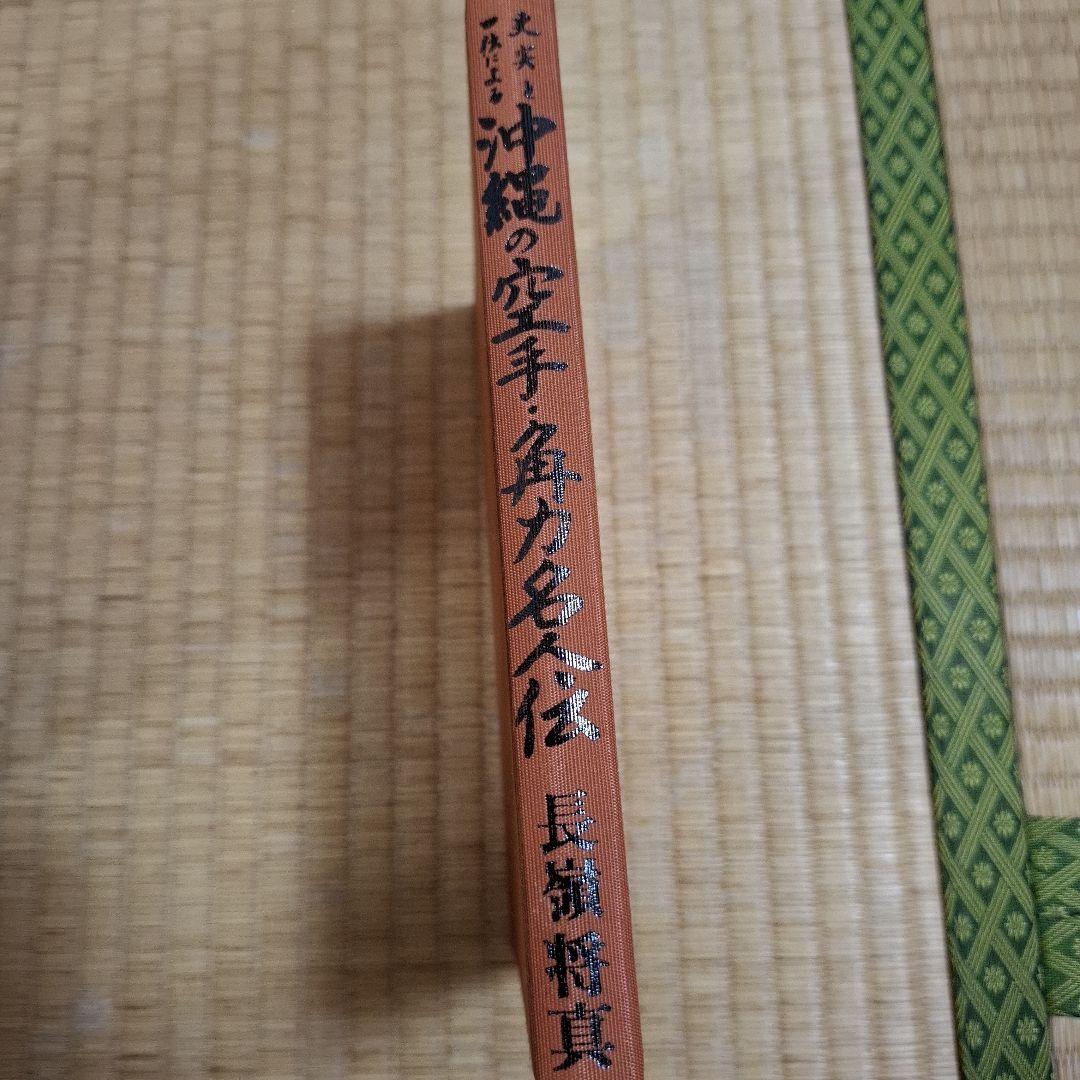 史実と
口伝による
沖縄の空手・角力名人伝
長嶺将真